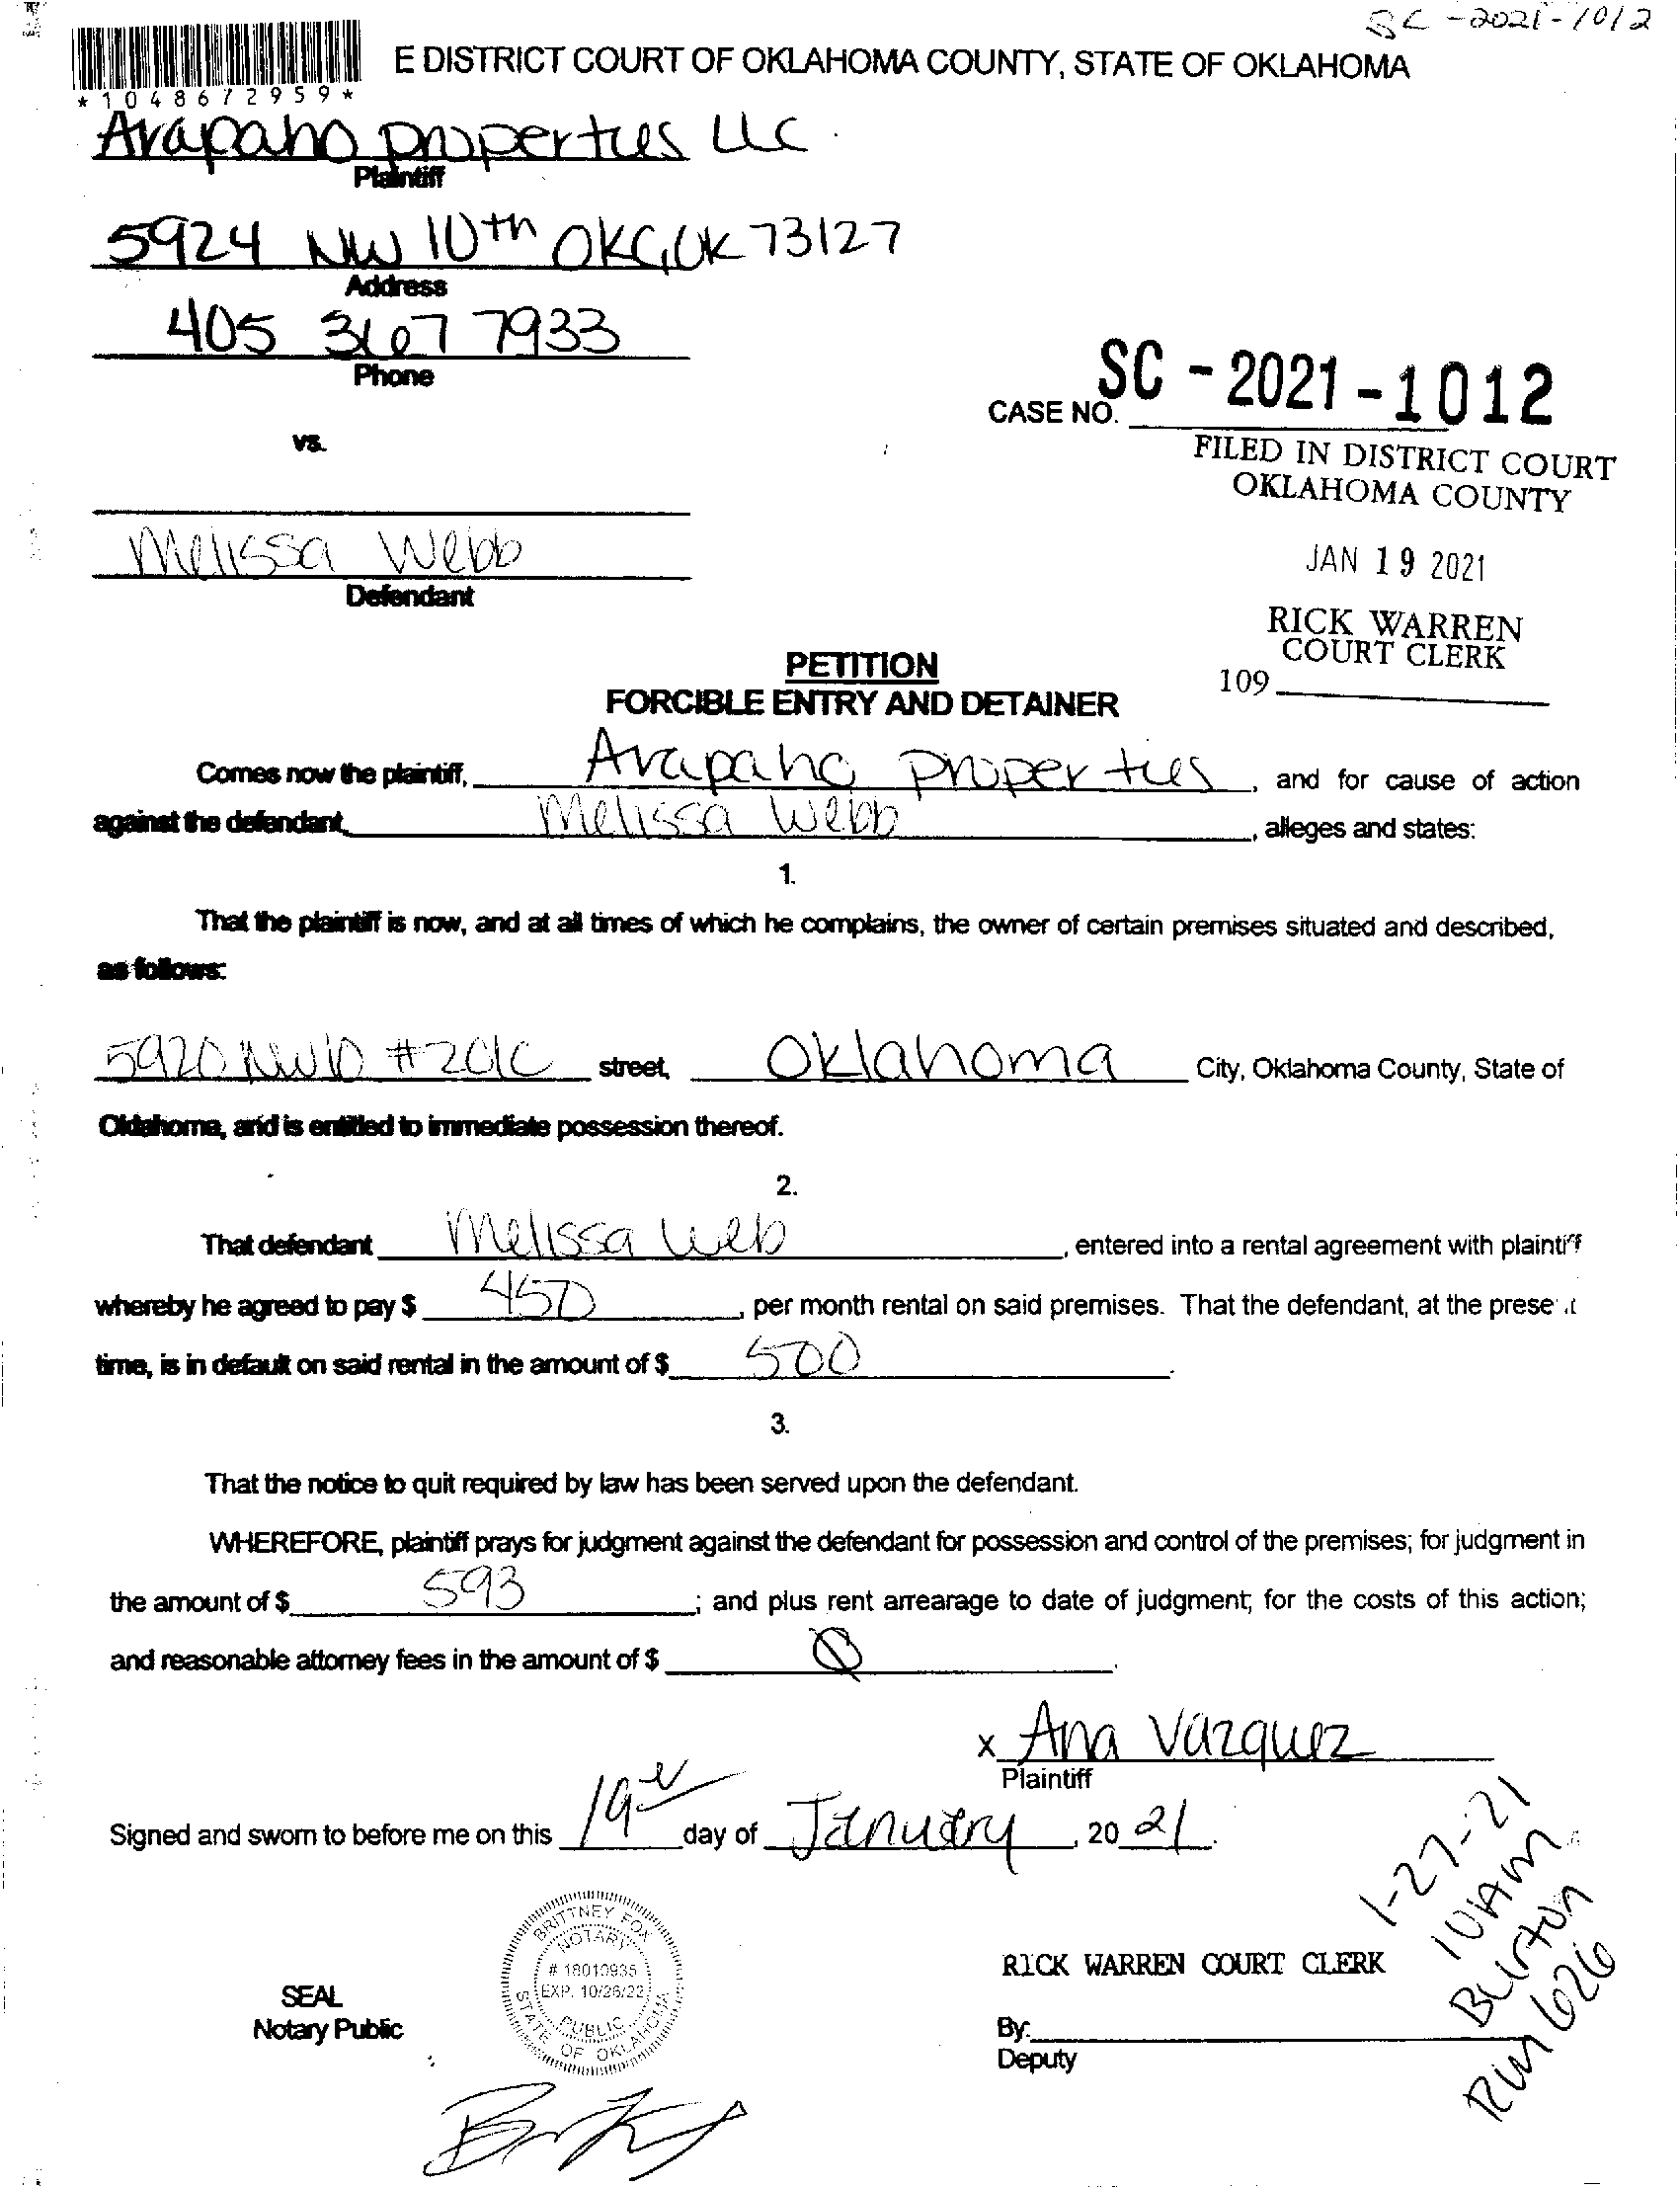 SC-2021-1012
E DISTRICT COURT OF OKLAHOMA COUNTY, STATE OF OKLAHOMA
*1048672959*
Arapaho properties LLC.
Plaintiff
5924 NW 10th OKC, OK 73127
Address
405 367 7933
Phone
SC-2021-1012
CASE NO.
vs.
FILED IN DISTRICT COURT
OKLAHOMA COUNTY
Melissa Webb
Defendant
JAN 19 2021
RICK WARREN
COURT CLERK
109
PETITION
FORCIBLE ENTRY AND DETAINER
Comes now the plaintiff, Arapaho properties, and for cause of action
against the defendant, Melissa Webb, alleges and states:
1.
That the plaintiff is now, and at all times of which he complains, the owner of certain premises situated and described,
as follows:
5920 NW 10 #201C street, Oklahoma City, Oklahoma County, State of
Oklahoma, and is entitled to immediate possession thereof.
2.
That defendant Melissa Web, entered into a rental agreement with plaintiff
whereby he agreed to pay $ 450, per month rental on said premises. That the defendant, at the present
time, is in default on said rental in the amount of $ 500.
3.
That the notice to quit required by law has been served upon the defendant.
WHEREFORE, plaintiff prays for judgment against the defendant for possession and control of the premises; for judgment in
the amount of $ 593; and plus rent arrearage to date of judgment; for the costs of this action;
and reasonable attorney fees in the amount of $ Ø.
x Ana Vazquez
Plaintiff
Signed and sworn to before me on this 19 day of January, 2021.
1-27-21
10AM
Burton
RM 626
BRITTNEY FOX
NOTARY
# 18010935
EXP. 10/26/22
PUBLIC
STATE OF OKLAHOMA
SEAL
Notary Public
RICK WARREN COURT CLERK
By:
Deputy